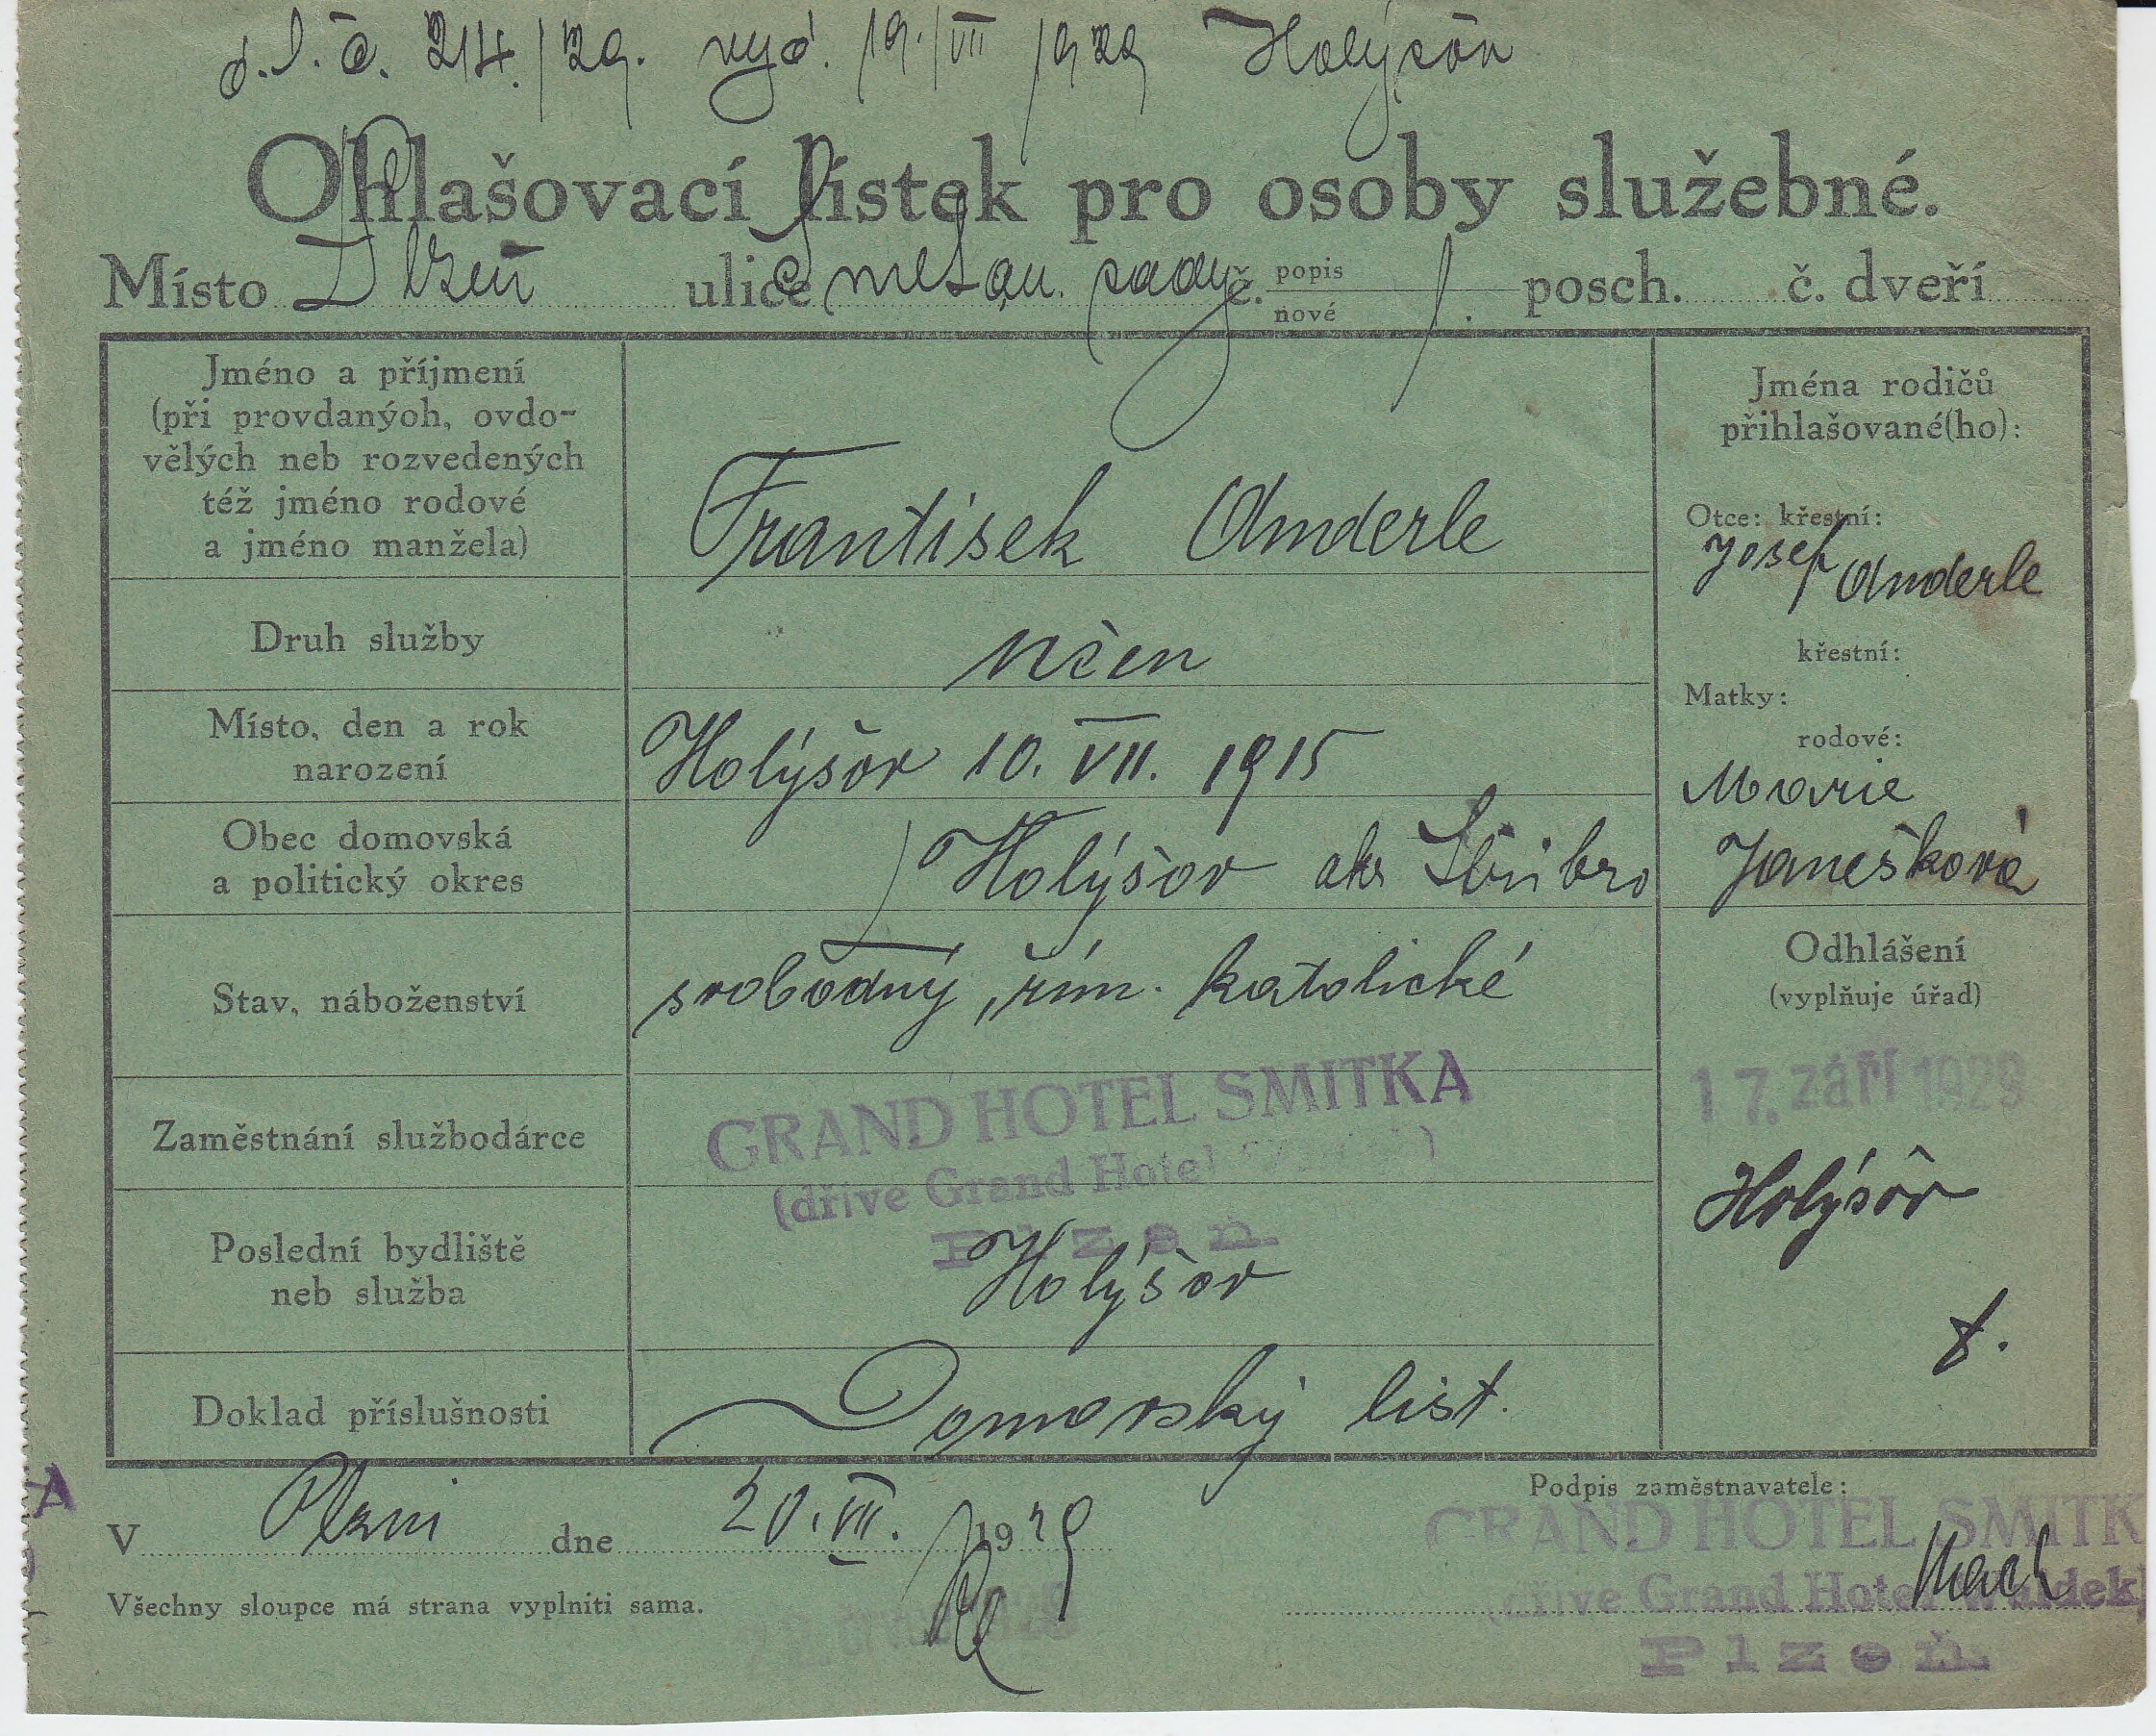 d. l. č. 214./29. vyd. 19./VII 1929 Holýšov
Ohlašovací lístek pro osoby služebné.
Místo Plzeň ulice Smetan. sady č. popis / nové 1. posch. č. dveří
Jméno a příjmení
(při provdanýoh, ovdo-
vělých neb rozvedených
též jméno rodové
a jméno manžela)
František Anderle
Jména rodičů
přihlašované(ho):
Otce: křestní:
Josef Anderle
křestní:
Matky:
rodové:
Marie
Janešková
Druh služby
učen
Místo, den a rok
narození
Holýšov 10. VII. 1915
Obec domovská
a politický okres
Holýšov okr Stříbro
Stav, náboženství
svobodný, řím. katolické
Odhlášení
(vyplňuje úřad)
17. září 1929
Holýšov
Zaměstnání službodárce
GRAND HOTEL SMITKA
(dříve Grand Hotel
Plzeň
Poslední bydliště
neb služba
Holýšov
Doklad příslušnosti
Domovský list.
V Plzni dne 20. VII. 1929
Podpis zaměstnavatele:
GRAND HOTEL SMITK
(dříve Grand Hotel Waldek)
Plzeň
Mach
Všechny sloupce má strana vyplniti sama.